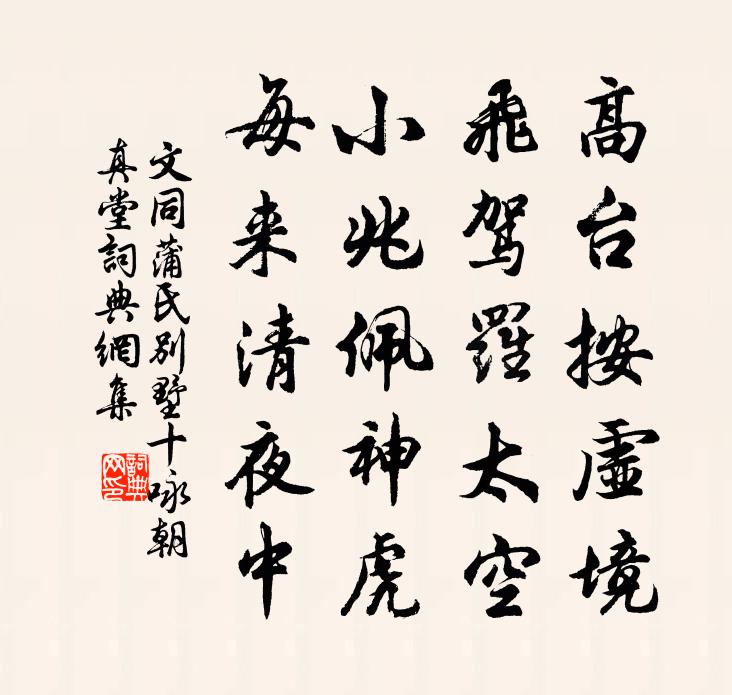 高台按虛境
飛駕羅太空
小兆佩神虎
每来清夜中
文同蒲氏別墅十咏朝
真堂詞典網集
詞典网印